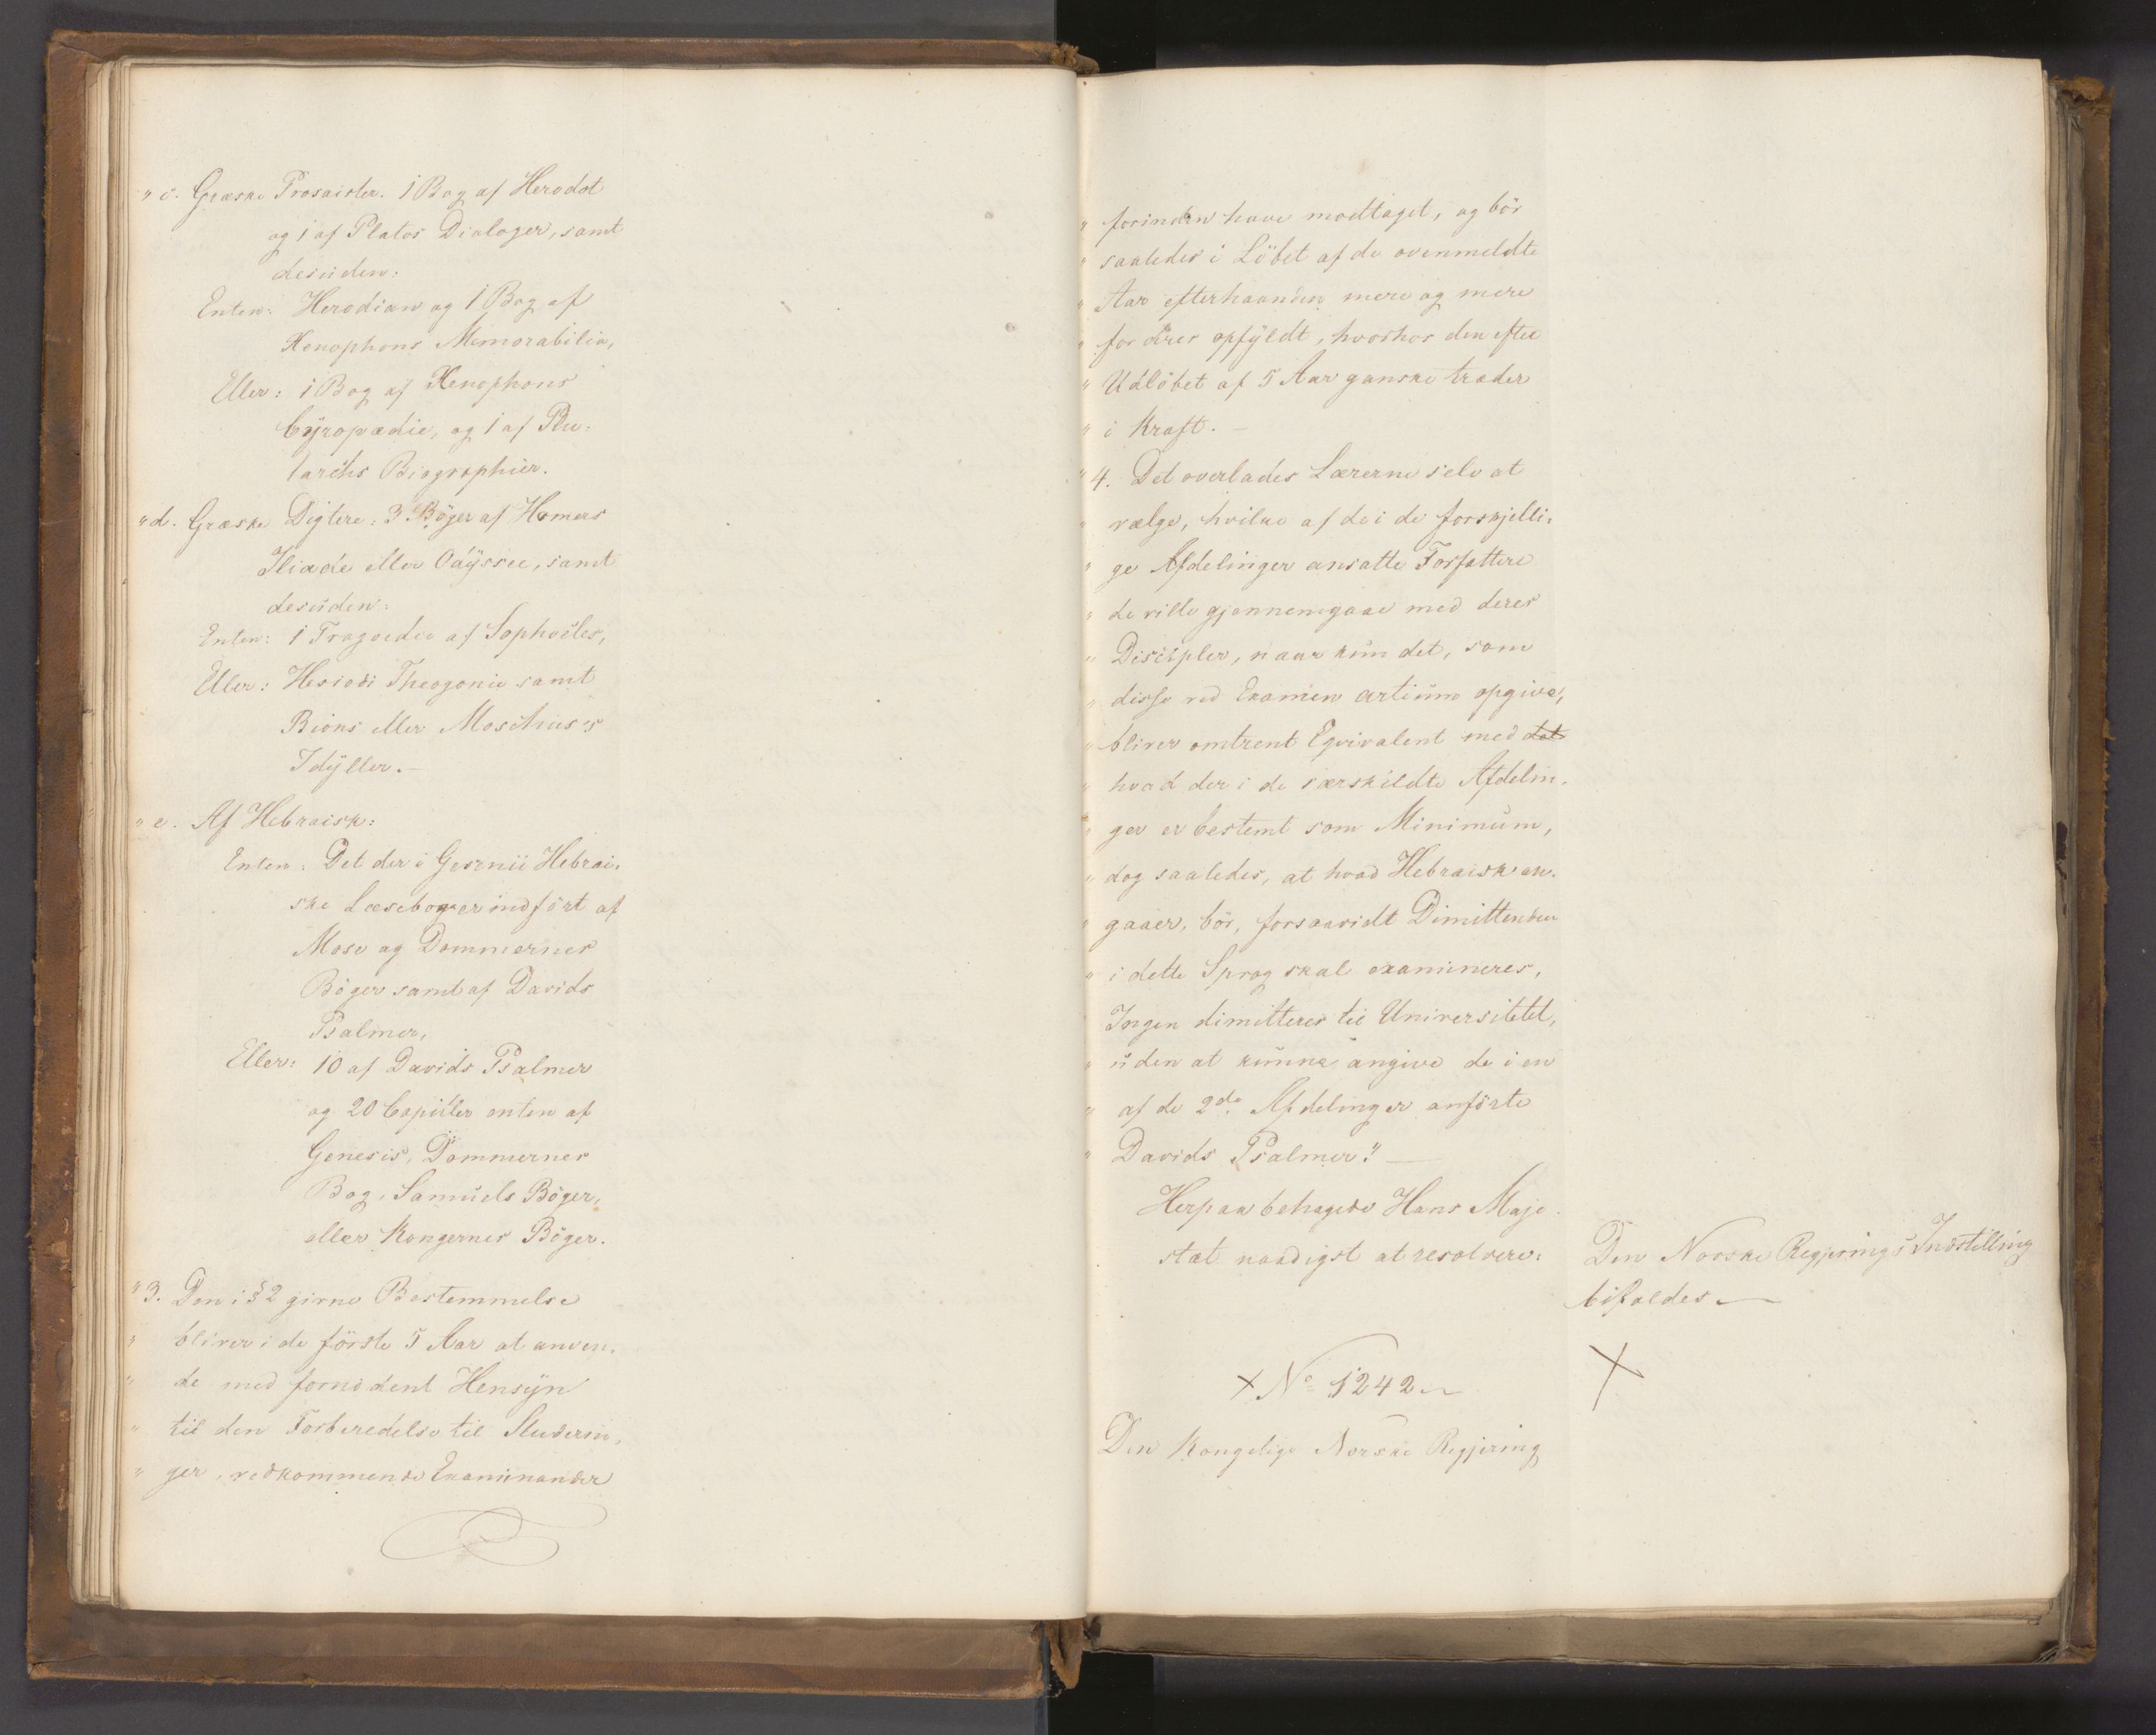 " c. Græske Prosaister. 1 Bog af Herodot
og 1 af Platos Dialoger, samt
desuden:
Enten: Herodian og 1 Bog af
Xenophons Memorabilia,
Eller: 1 Bog af Xenophons
Cyropædie, og 1 af Plu-
tarchs Biographier.
" d. Græske Digtere: 3 Böger af Homers
Iliade eller Odyssee, samt
desuden:
Enten: 1 Tragoedie af Sophocles,
Eller: Hesiodi Theogonie samt
Bions eller Moschus's
Idyller.—
" e. Af Hebraisk:
Enten: Det der i Gesenii Hebrai-
ske Læsebog er indfört af
Mose og Dommernes
Böger samt af Davids
Psalmer,
Eller: 10 af Davids Psalmer
og 20 Capitler enten af
Genesis, Dommernes
Bog, Samuels Böger,
eller Kongernes Böger.
" 3. Den i § 2 givne Bestemmelse
" bliver i de förste 5 Aar at anven-
" de med fornödent Hensyn
" til den Forberedelse til Studerin-
" ger, vedkommende Examinander
" forinden have modtaget, og bör
" saaledes i Löbet af de ovenmeldte
" Aar efterhaanden mere og mere
" fordres opfyldt, hvorhos den efter
" Udlöbet af 5 Aar ganske træder
" i Kraft.—
" 4. Det overlades Lærerne selv at
" vælge, hvilke af de i de forskjelli-
" ge Afdelinger ansatte Forfattere
" de ville gjennemgaae med deres
" Discipler, naar kun det, som
" disse ved Examen artium opgive,
" bliver omtrent Eqvivalent med det
" hvad der i de særskildte Afdelin-
" ger er bestemt som Minimum,
" dog saaledes, at hvad Hebraisk an-
" gaaer, bör, forsaavidt Dimittenden
" i dette Sprog skal examineres,
Ingen dimitteres til Universitetet,
" uden at kunne angive de i en
" af de 2de Afdelinger anförte
" Davids Psalmer." —
Herpaa behagede Hans Maje-
stæt naadigst at resolvere:
Den Norske Regjerings Indstilling
bifaldes —
+ No 1242 —
+
Den Kongelige Norske Regjering